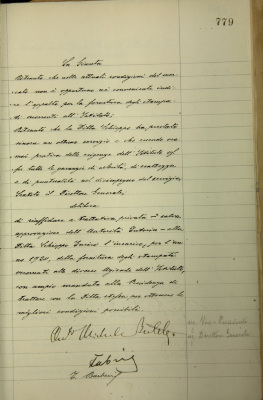 779
La Giunta
Ritenuto che nelle attuali condizioni del mer-
cato non è opportuno nè conveniente indi-
re l'appalto per la fornitura degli stampa-
ti occorrenti all'Istituto;
Ritenuto che la Ditta Schioppo ha prestato
finora un ottimo servizio e che essendo or-
mai pratica delle esigenze dell'Istituto of-
fre tutte le garanzie di celerità, di esattezza
e di puntualità nel disimpegno del servizio;
Sentito il Direttore Generale,
delibera
di riaffidare a trattativa privata e salvo
approvazione dell'Autorità Tutoria - alla
Ditta Schioppo l'incarico, per l'an-
no 1921, della fornitura degli stampati
occorrenti alle diverse Agenzie dell'Istituto,
con ampio mandato alla Presidenza di
trattare con la Ditta stessa per ottenere le
migliori condizioni possibili.
Michele
Vice-Presidente
Direttore Generale